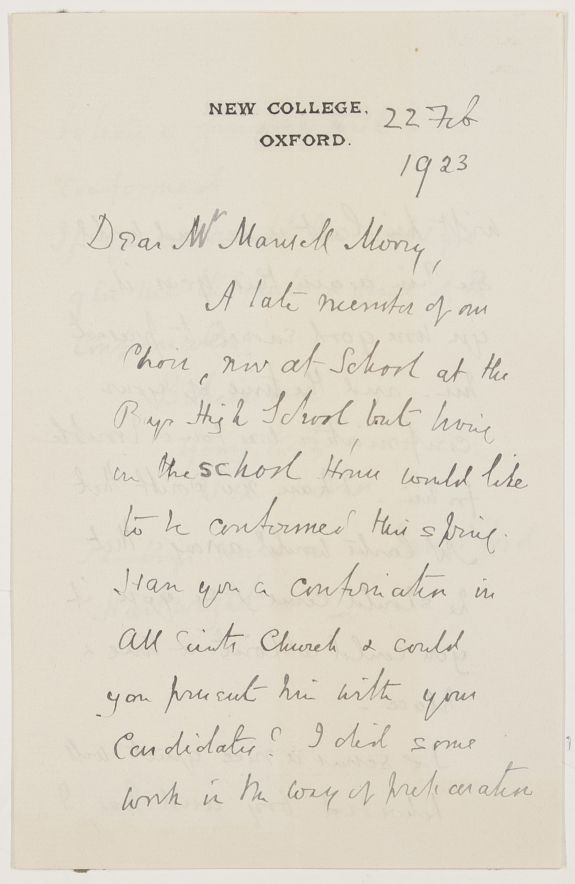 NEW COLLEGE,
OXFORD.
22 Feb
1923
Dear Mr Mansell Merry,
A late member of our
Choir, now at School at the
Boys High School but living
in the school House would like
to be confirmed this spring.
Have you a confirmation in
All Saints Church & could
you present him with your
Candidates? I did some
work in the way of preparation